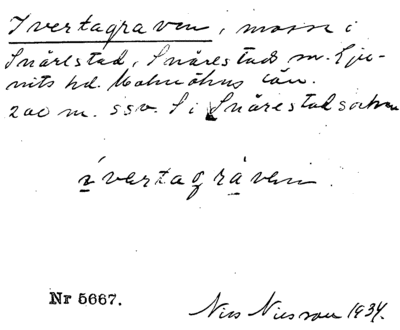 Ivertagraven, mosse i
Snårestad, Snårestads sn. Lju-
nits hd. Malmöhus län.
200 m. ssv. S i Snårestad socken
ívertagråven.
Nr 5667.
Nils Nilsson 1934.